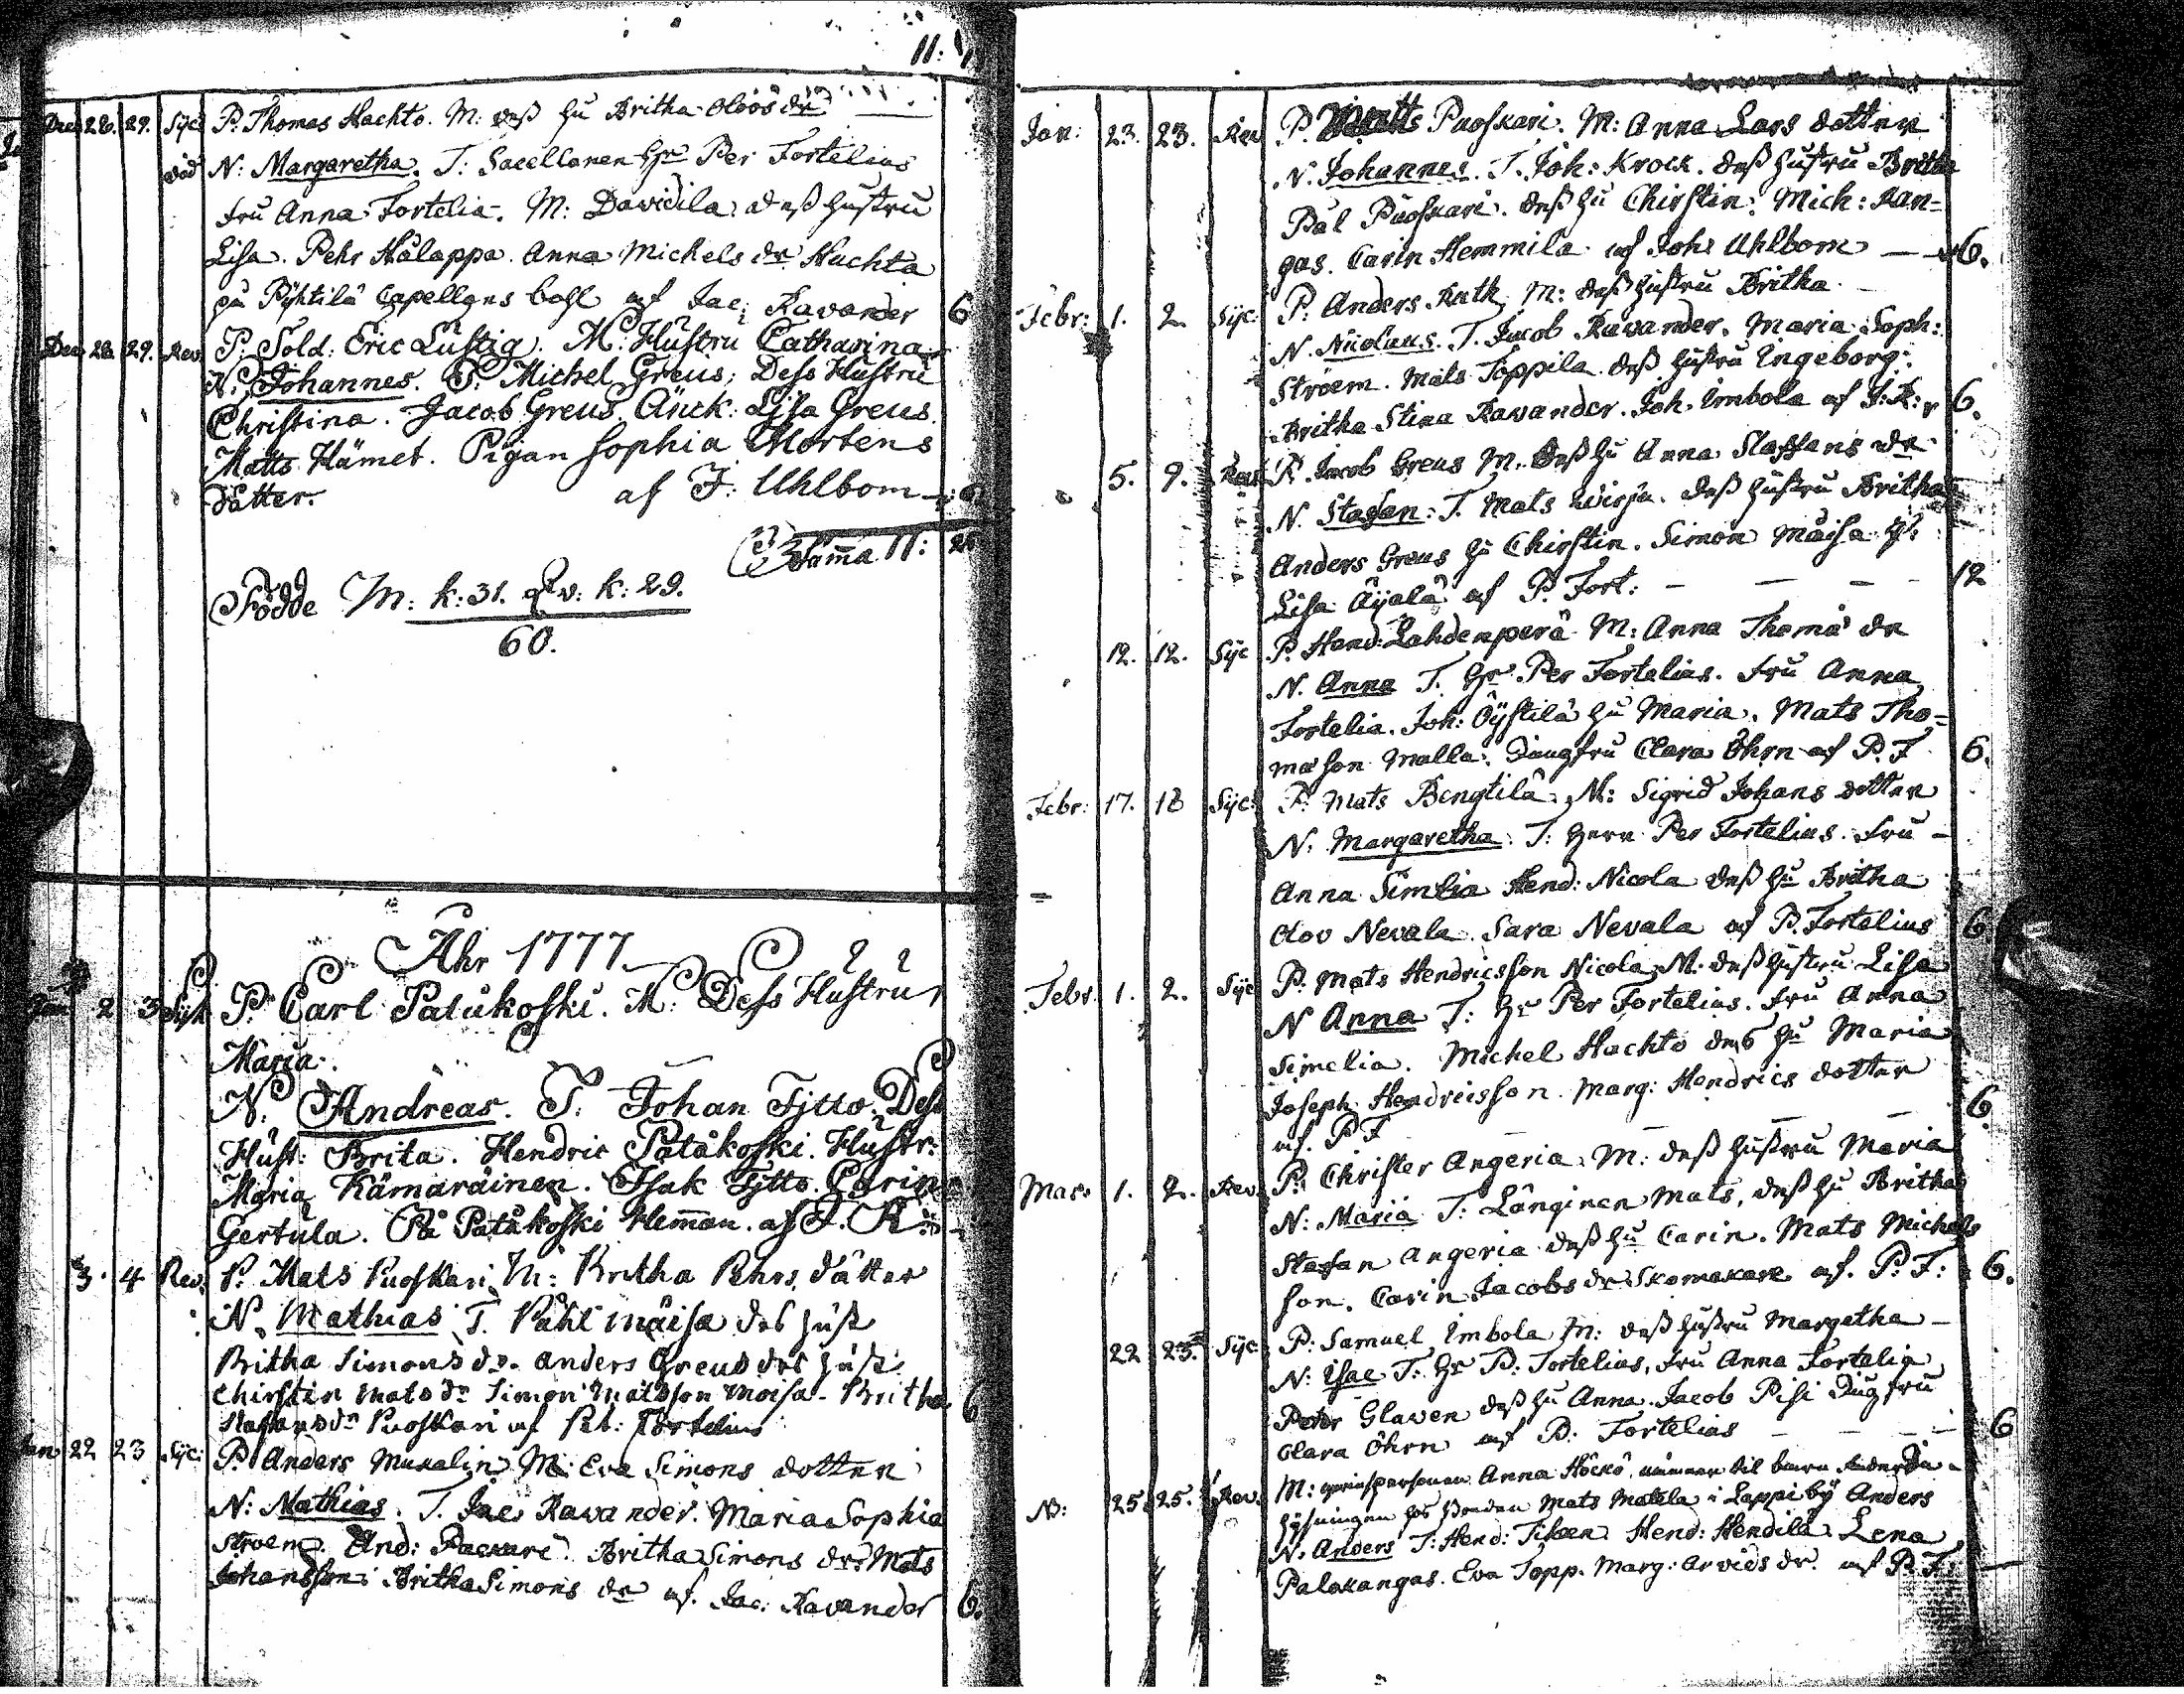 11:
Dec 28. 29. Syc P. Thomas Hachto. M: deß Hu Britha Oloos dr
död N: Margaretha. T: Sacellanen Hr Per Fortelius
fru Anna Fortelia. M: Davidila deß hustru
Lisa. Pehr Hålappa. Anna Michels dr Hachta
på Pyhtilä Capellans bohl af Jac: Ravander 6
Dec 28. 29. Rev. P. Sold: Eric Lustig. M: Hustru Catharina
N: Johannes. T: Michel Greus; Dess Hustru
Christina. Jacob Greus. Änck: Lisa Greus.
Matts Hämet. Pigan Sophia Mortens
dåtter. af J: Uhlbom 6
Summa 11: 24
Födde M: k: 31. qv: k: 29.
60.
Åhr 1777
Jan 2 3 Syk P. Carl Patukoski. M: Dess Hustru
Maria.
N: Andreas. T: Johan Tjtto. Dess
Hust: Brita. Hendric Patåkoski. Hustr:
Maria Kämäräinen. Isak Tjtto. Carin
Gertula. På Patåkoski Hemman. af J. R:
3. 4 Rev. P. Mats Puoskari M: Britha Pehrs dåtter
N. Mathias T. Påhl Mäisa des hust
Britha Simons dr. Anders Greus des hust
Chirstin Mats dr Simon Matsson Moisa. Britha 6
Stafans dr Puoskari af Pet: Fortelius
Jan 22 23 Syc: P. Anders Mukalin M: Eva Simons dotter
N: Mathias. T. Jac Ravander. Maria Sophia
Stroem. And: Packari. Britha Simons dr. Mats
Johansson. Britha Simons dr af. Jac: Ravander 6.
Jan: 23. 23. Rev P. Matts Puoskari. M: Anna Lars dotter
N. Johannes. T. Joh: Krock. deß hustru Britha
Pål Puoskari. deß hu Chirstin. Mich: Kan=
gas. Carin Hemmila af Joh: Uhlbom — 6.
Febr: 1. 2. Syc: P. Anders Rutk. M: deß hustru Britha.
N. Nicolaus. T. Jacob Ravander. Maria Soph:
Ströem. Mats Toppila deß hustru Ingeborg.
Britha Stina Ravander. Joh. Imbola af J: R: 6.
5. 9. Rev P. Jacob Greus M. deß hu Anna Staffans dr
N. Stafan: T. Mats Wirsu. deß hustru Britha
Anders Greus hu Chirstin. Simon Mäisa
Lisa Äyalä af P. Fort: — — — 12
12. 12. Syc P. Hend: Lahdenperä M: Anna Thoma dr
N. Anna T. Hr Per Fortelius. fru Anna
Fortelia. Joh: Öystilä hu Maria. Mats Tho=
masson Malla. Jungfru Clara Öhrn af P. F 6.
Febr: 17. 18 Syc: P: Mats Bengtilä. M: Sigrid Johans dotter
N: Margaretha. T: Herr Per Fortelius. fru —
Anna Simelia Hend: Nicola deß hu Britha
Olov Nevala. Sara Nevala af P. Fortelius 6
Febr. 1. 2. Syc P. Mats Hendricsson Nicola. M. deß hustru Lisa
N Anna T: Hr Per Fortelius. fru Anna
Simelia. Michel Hachto des hu Maria
Joseph Hendricsson. Marg: Hendrics dotter
af. P F — — — 6.
Mars 1. 2. Rev. P: Christer Angeria M: deß hustru Maria
N: Maria T: Länginen Mats, deß hu Britha
Stafan Angeria deß hu Carin. Mats Michels
son. Carin Jacobs dr Skomakare af. P: F: 6.
22 23. Syc: P: Samuel Imbola M: deß hustru Margetha —
N: Isac T: Hr P: Fortelius, fru Anna Fortelia
Peter Glaven deß hu Anna. Jacob Pisi Jugfru
Clara Öhrn af P: Fortelius — — — 6
N: 25 25. Rev. M: Anna Höckö til barn
hos bonden Mats Matela i Lappi bÿ Anders
N. Anders T: Hend: Tikan Hend: Hendilä Lena
Palokangas. Eva Topp. Marg: Arvids dr. af P. F: